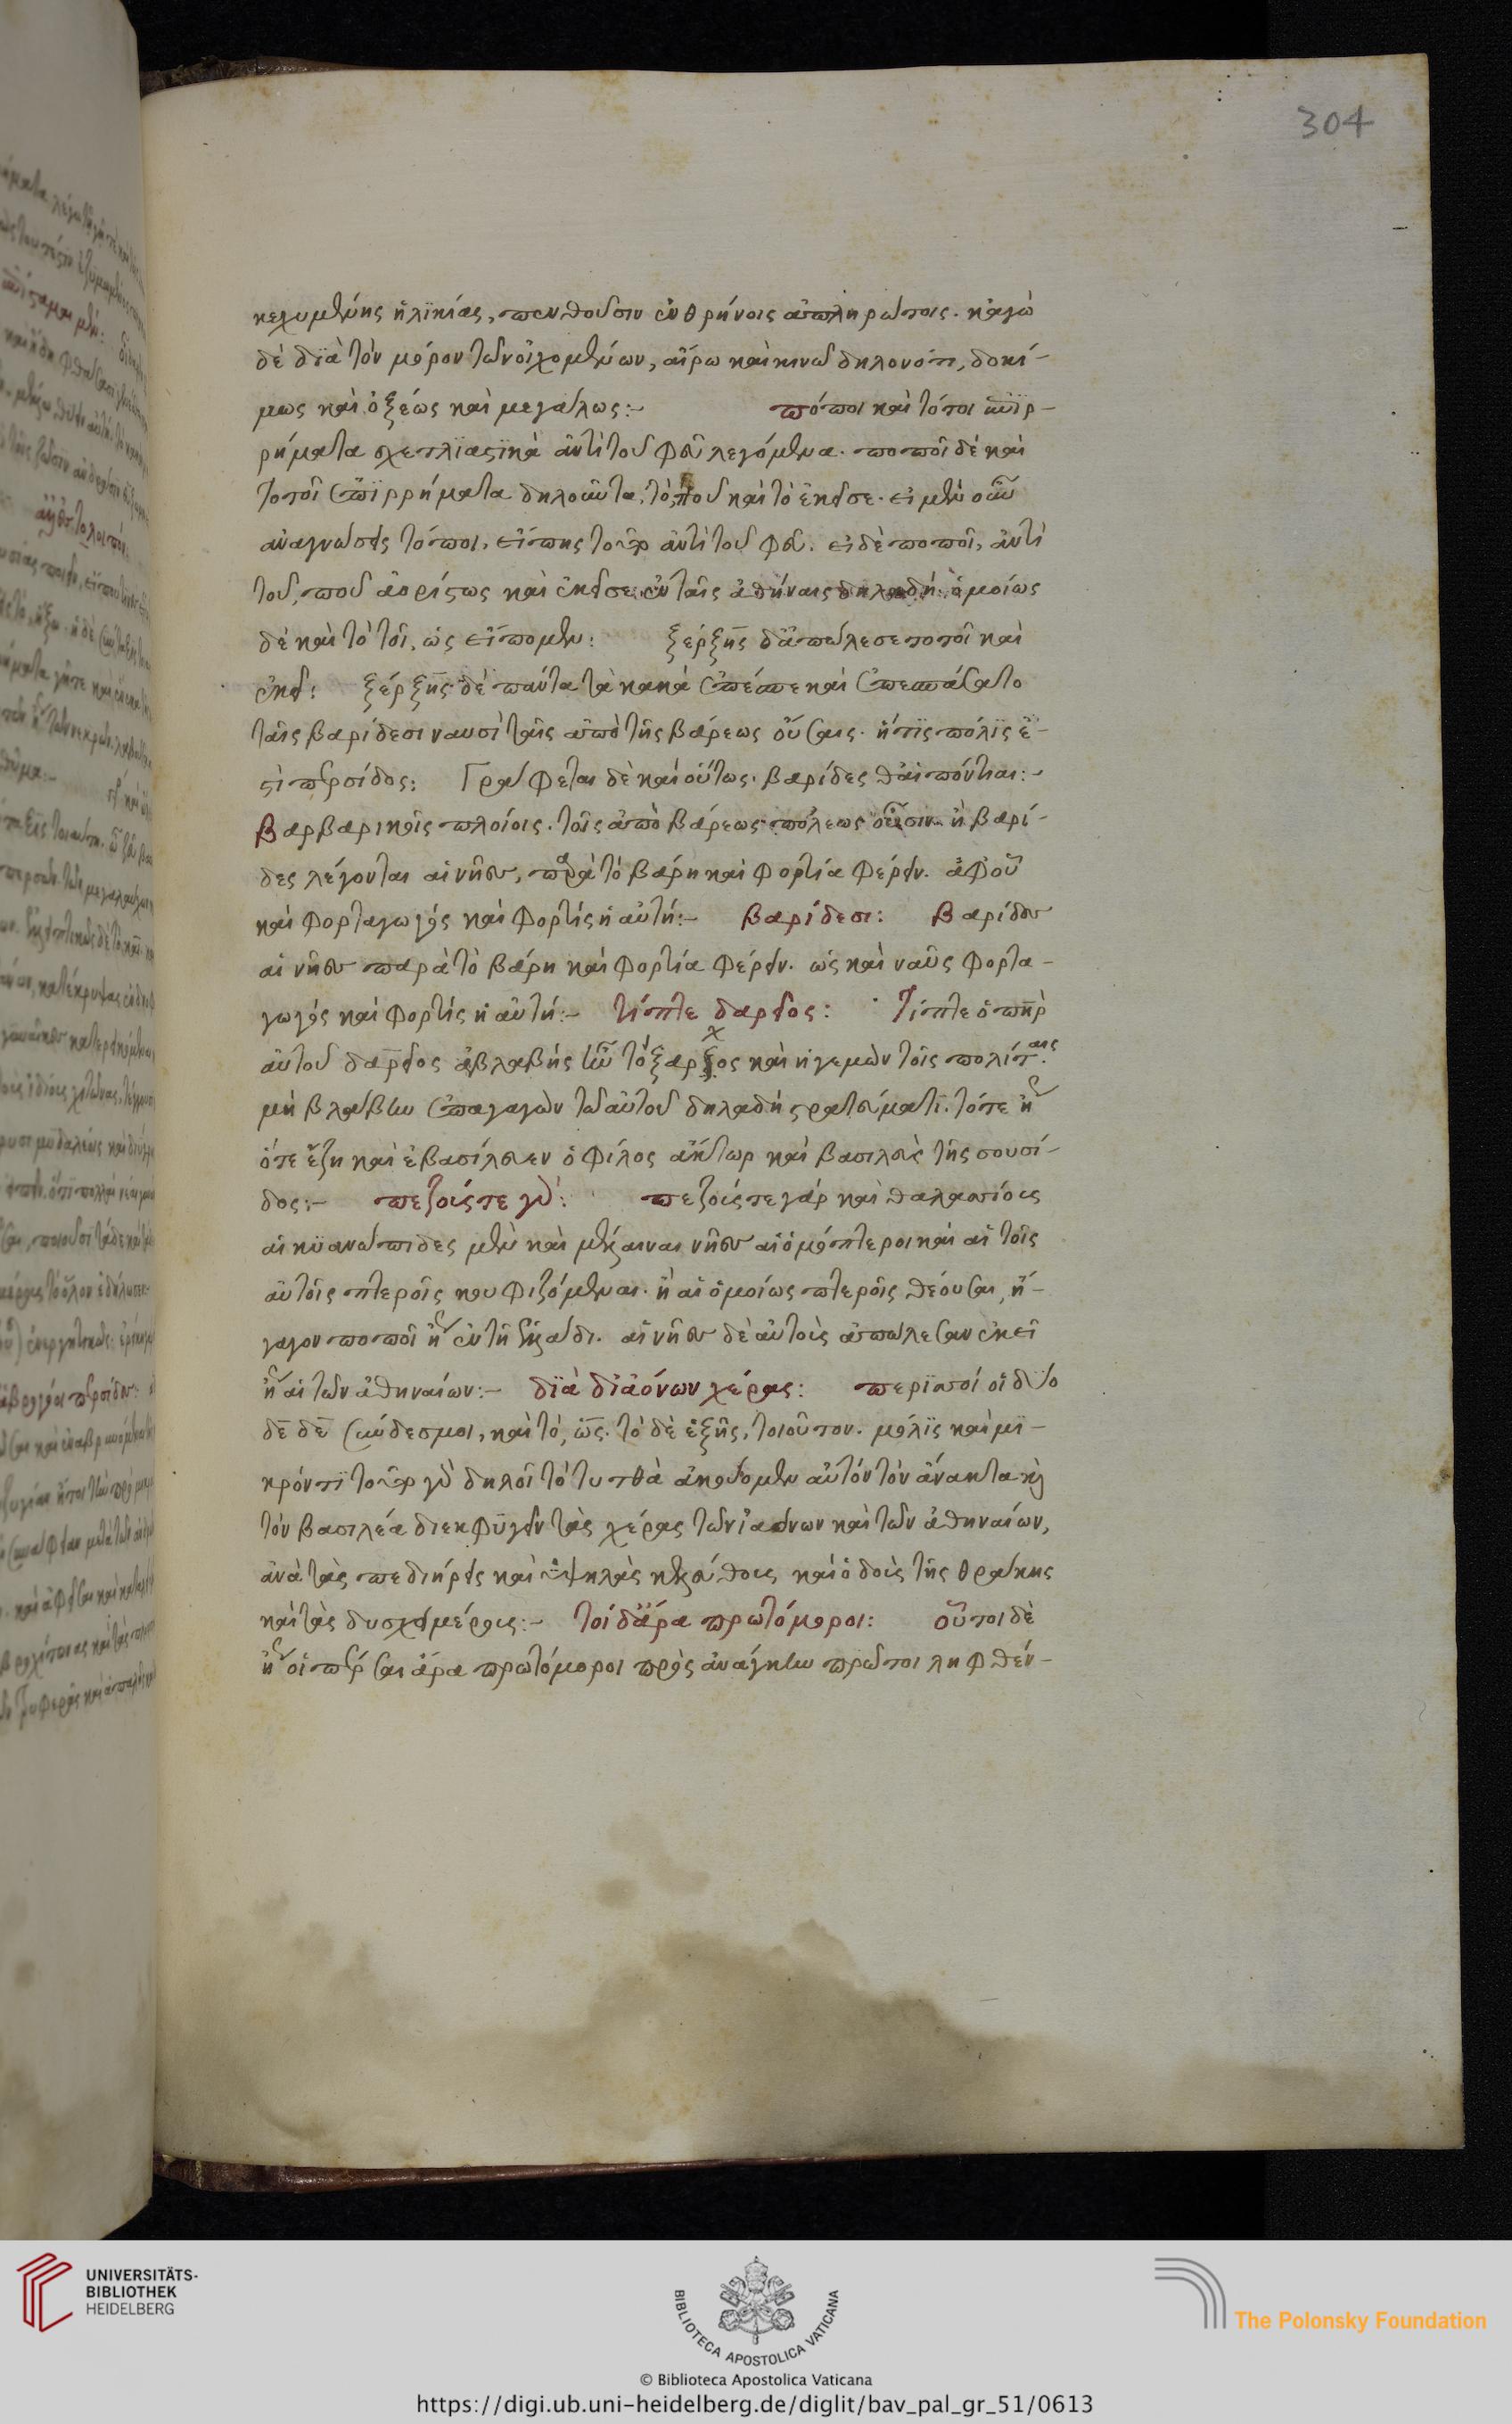 304
κεχυμένης ἡλϊκίας, πενθοῦσιν ἐν θρήνοις ἀπληρώτοις. κἀγὼ
δὲ δϊὰ τὸν μόρον τῶν οἰχομένων, αἴρω καὶ κινῶ δηλονότι, δοκί-
μως καὶ ὀξέως καὶ μεγάλως:- πόποι καὶ τότοι ἐπϊρ-
ρήματα σχετλϊαστϊκὰ ἀντὶ τοῦ φεῦ λεγόμενα. ποποῖ δὲ καὶ
τοτοῖ ἐπϊρρήματα δηλοῦντα, τὸ ποῦ καὶ τὸ ἐκεῖσε. εἰ μὲν οὖν
ἀναγνώσεις τόποι, εἴπῃς τοῦτο ἀντὶ τοῦ φεῦ. εἰ δὲ ποποῖ, ἀντὶ
τοῦ, ποῦ ἀορίστως καὶ ἐκεῖσε ἐν ταῖς ἀθήναις δηλαδή. ὁμοίως
δὲ καὶ τὸ τοῖ, ὡς εἴπομεν: ξέρξης δ' ἀπώλεσε τοτοῖ καὶ
ἐκεῖ: ξέρξης δὲ πάντα τὰ κακὰ ἐπέσπε καὶ ἐπεσπάσατο
ταῖς βαρίδεσι ναυσὶ ταῖς ἀπὸ τῆς βάρεως οὔσαις. ἥτϊς πόλϊς ἐ-
στὶ περσίδος: Γράφεται δὲ καὶ οὕτως. βαρίδες θ' αἱ πόντιαι:-
βαρβαρικοῖς πλοίοις. τοῖς ἀπὸ βάρεως πόλεως οὖσιν. ἢ βαρί-
δες λέγονται αἱ νῆες, παρὰ τὸ βάρη καὶ φορτία φέρειν. ἀφ' οὗ
καὶ φορταγωγὸς καὶ φορτὶς ἡ αὐτή:- βαρίδεσι: βαρίδες
αἱ νῆες παρὰ τὸ βάρη καὶ φορτία φέρειν. ὡς καὶ ναῦς φορτα-
γωγὸς καὶ φορτὶς ἡ αὐτή:- τίπτε δαρεῖος: Τίπτε ὁ πατὴρ
αὐτοῦ δαρεῖος ἀβλαβὴς ἦν τόξαρχος καὶ ἡγεμὼν τοῖς πολίταις.
μὴ βλάβην ἐπαγαγὼν τῷ αὐτοῦ δηλαδὴ στρατεύματι. τότε ἤγουν
ὅτε ἔζη καὶ ἐβασίλευεν ὁ φίλος ἄκτωρ καὶ βασιλεὺς τῆς σουσί-
δος:- πεζούς τε γάρ: πεζούς τε γὰρ καὶ θαλασσίους
αἱ κϋανώπιδες μὲν καὶ μέλαιναι νῆες αἱ ὁμόπτεροι καὶ αἱ τοῖς
αὐτοῖς πτεροῖς κουφιζόμεναι. ἢ αἱ ὁμοίως πτεροῖς θέουσαι, ἤ-
γαγον ποποῖ ἤγουν ἐν τῇ ἑλλάδι. αἱ νῆες δὲ αὐτοὺς ἀπώλεσαν ἐκεῖ
ἤγουν αἱ τῶν ἀθηναίων:- δϊὰ δ' ϊαόνων χέρας: περϊσσοὶ οἱ δύο
δε δε σύνδεσμοι, καὶ τὸ, ὡς. τὸ δὲ ἑξῆς, τοιοῦτον. μόλϊς καὶ μϊ-
κρόν τι τοῦτο γὰρ δηλοῖ τὸ τυτθὰ ἀκούομεν αὐτὸν τὸν ἄνακτα καὶ
τὸν βασιλέα διεκφϋγεῖν τὰς χέρας τῶν ϊαόνων καὶ τῶν ἀθηναίων,
ἀνὰ τὰς πεδιήρεις καὶ ὑψηλὰς κελεύθους καὶ ὁδοὺς τῆς θράκης
καὶ τὰς δυσχειμέρους:- τοὶ δ' ἄρα πρωτόμοροι: οὗτοι δὲ
ἤγουν οἱ πέρσαι ἄρα πρωτόμοροι πρὸς ἀνάγκην πρῶτοι ληφθέν-
UNIVERSITÄTS-
BIBLIOTHEK
HEIDELBERG
BIBLIOTECA APOSTOLICA VATICANA
The Polonsky Foundation
© Biblioteca Apostolica Vaticana
https://digi.ub.uni-heidelberg.de/diglit/bav_pal_gr_51/0613